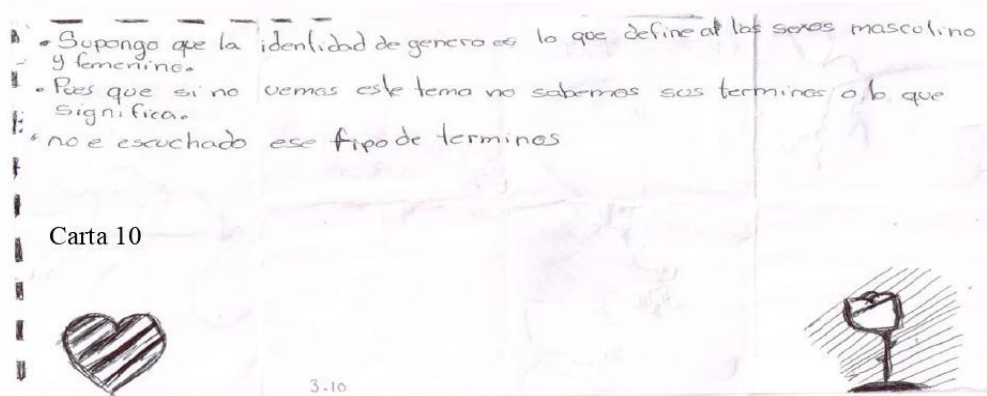 • Supongo que la identidad de genero es lo que define a los sexos masculino
y femenino.
• Pues que si no vemos este tema no sabemos sus terminos o lo que
significa.
• no e escuchado ese tipo de terminos
Carta 10
3.10